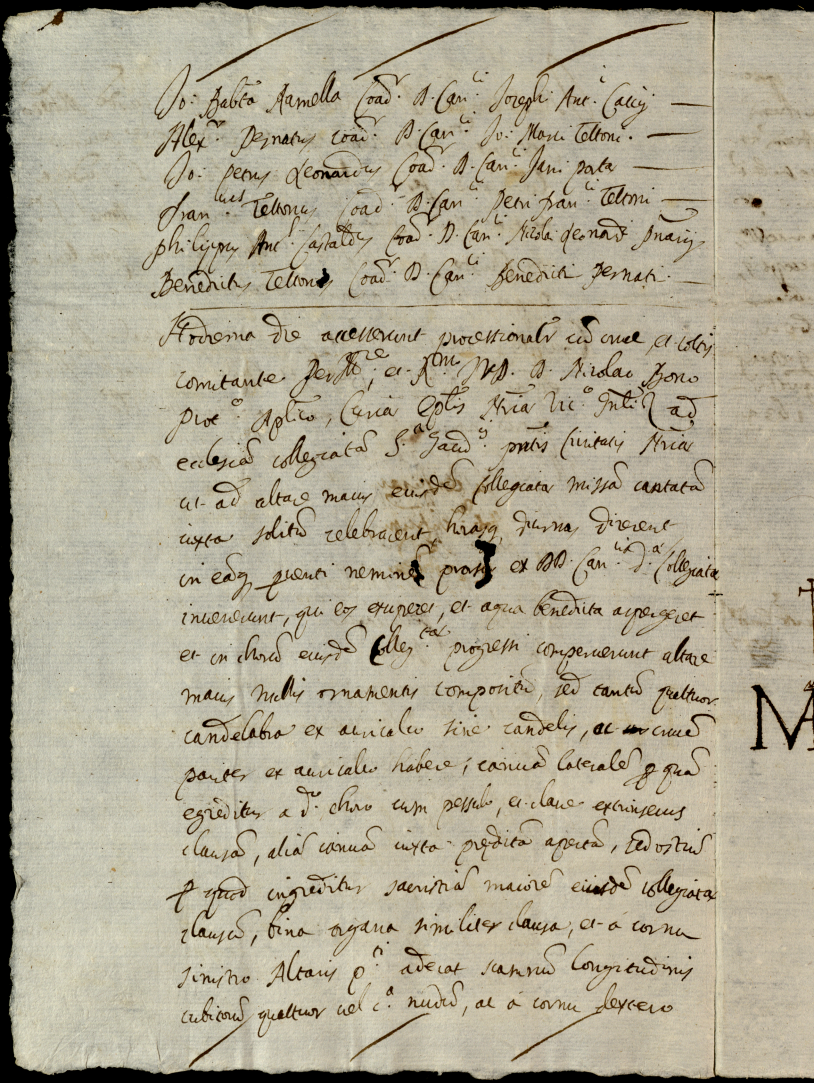 Jo: Babtã Ramella Coad.r D. Can.ci Joseph Ant.i Caccij
Alex.r Pernatus coad.r D. Can.ci Jo: Marci Teltoni.
Jo: Petrus Leonardus Coad.r D. Can.ci Jani porta
Fran.cus Teltonus Coad.r D. Can.ci Petri fran.ci Teltoni
Philippus Ant.s Castaldus Coad.r D. Can.ci Nicolai Leonardi
Benedictus Teltonus Coad.r D. Can.ci Benedicti Pernati.
Hodierna die accesserunt processionalr cũ cruce, et
comitante Per Ill.re, et R.mo D. Nicolao
Prot.o Aplico, Curiæ Eplis Nriæ Vic.o ad
ecclesiã collegiatã S.ti Gaud.ij pntis Civitatis Nriæ
ut ad altare maius eiusdẽ Collegiatæ missã cantatã
iuxta solitũ celebrarent, horasq, diurnas dicerent
in eãq, nemine ex DD. Can.cis d.æ Collegiatæ
invenerunt, qui eos exciperet, et aqua benedicta aspergeret
et in chorũ eiusdẽ Colleg.tæ progressi compererunt altare
maius nullis ornamentis compositũ, sed tantũ quattuor
candelabra ex auricalco sine candelis, ac crucẽ
pariter ex auricalco habere; ianuã lateralẽ p quã
egreditur a d.o choro cum pessulo, et clave extrinsecus
clausã, aliã ianuã iuxta predictã apertã, sed ostiũ
p quod ingreditur sacristiã maiorẽ eiusdẽ collegiatæ
clausũ, bina organa similiter clausa, et à cornu
sinistro Altaris p.ti aderat scamnũ longitudinis
cubitorũ quattuor vel c.a nudũ, ac à cornu dextero